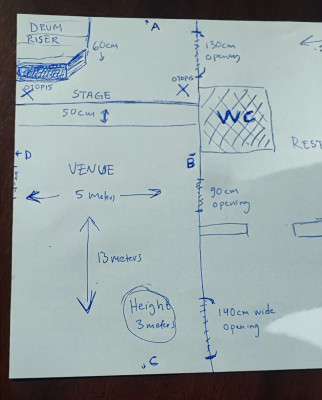 DRUM
RISER
60cm
A
130cm
opening
OTOPIS
OTOPIS
STAGE
50cm
WC
REST
D
VENUE
B
5 meters
90cm
opening
13 meters
Height
3 meters
140cm wide
opening
C